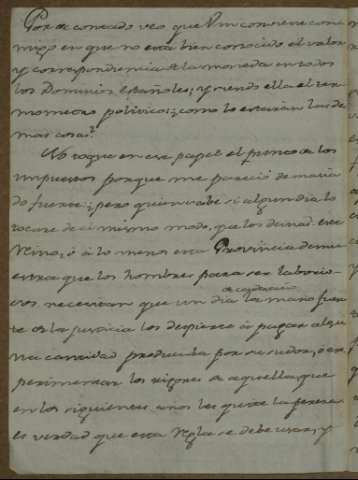 Por de contado veo que Vm conviene con
migo en que no está bien conocido el valor
y correspondencia de la moneda en todos
los Dominios Españoles; y siendo ella el ter
mometro politico; como lo estarán las de
mas cosas?
No toque en ese papel el punto de los
impuestos porque me pareció demacia
do fuerte; pero quien sabe si algun dia lo
tocare de el mismo modo, que los demas. este
Reino, ó á lo menos esta Provincia demu
estra que los hombres para ser laborio
sos necesitan que un dia la mano fuer
te de la justicia los despierte á pagar algu
na cantidad producida por su sudor, ó es
perimentar los rigores de aquella, que
en los siguientes años les quite la pereza
es verdad que esta Regla se debe usar, y